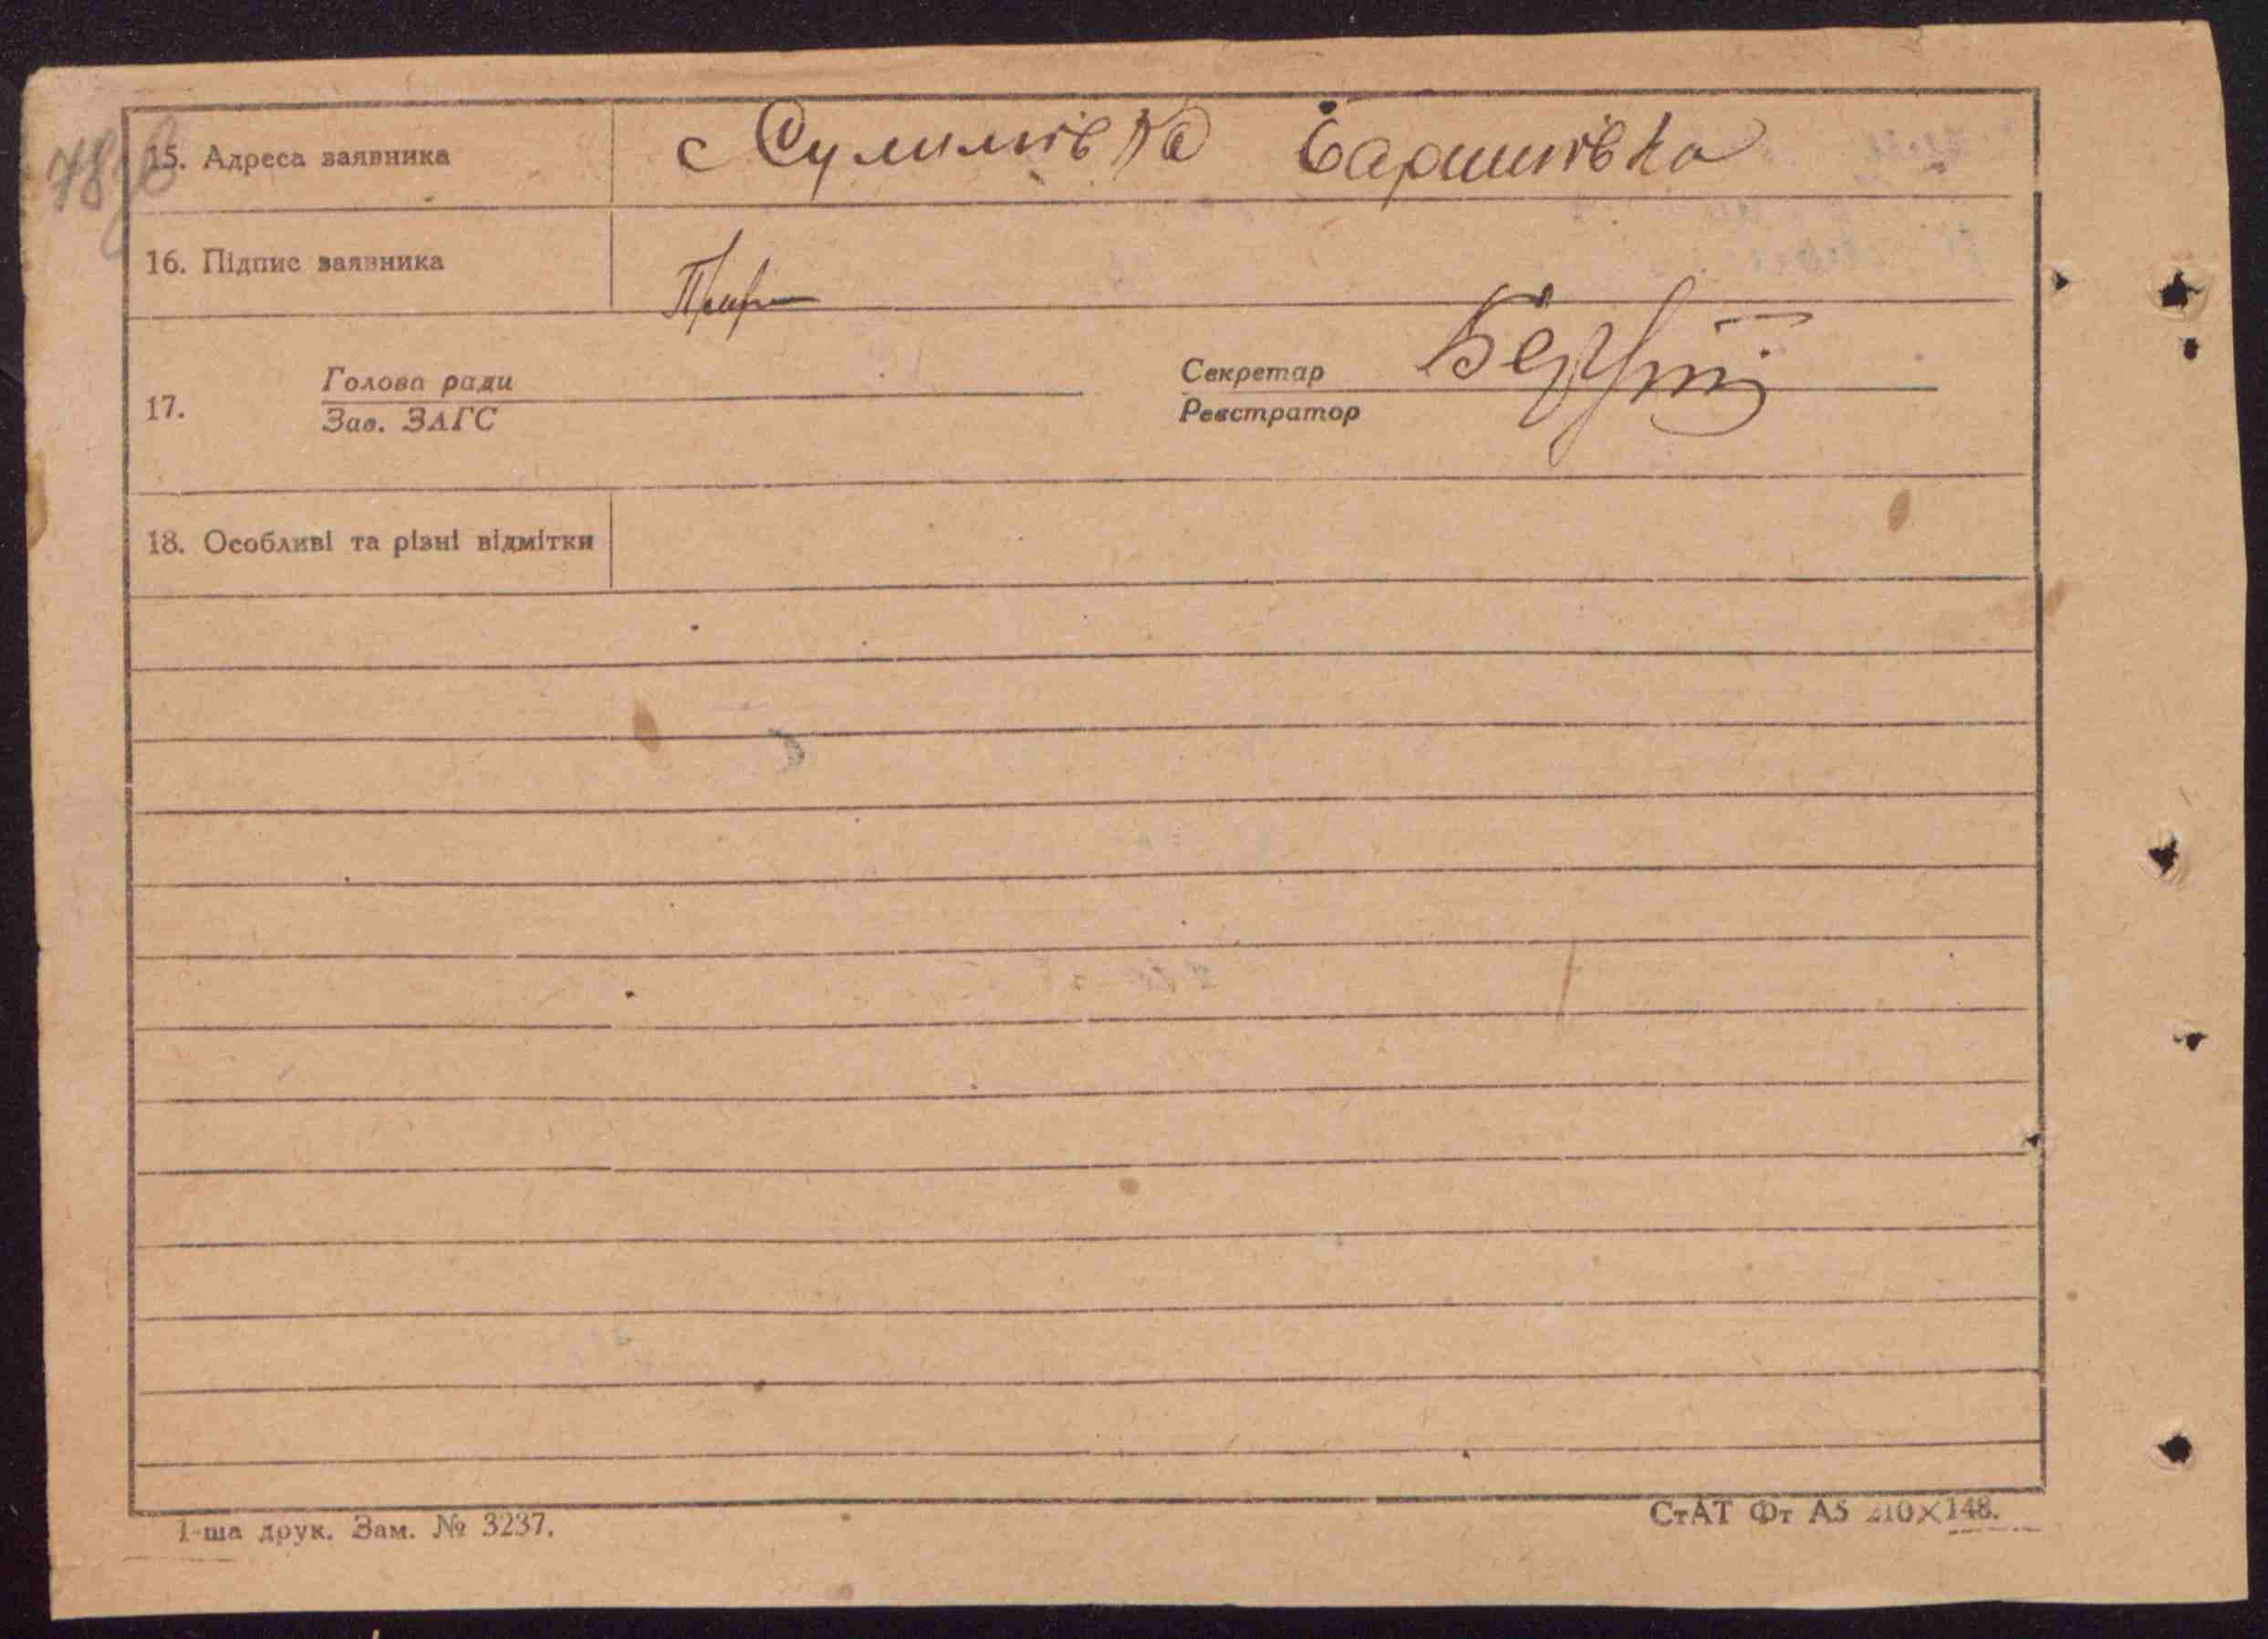 78
15. Адреса заявника с Сулимівка Баришівка
16. Підпис заявника
17. Голова ради Секретар
Зав. ЗАГС Реєстратор
18. Особливі та різні відмітки
1-ша друк. Зам. № 3237. СтАТ Фт А5 210×148.